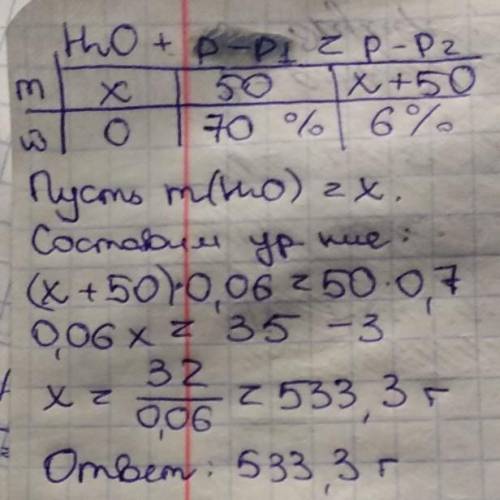 H₂O + р-р1 = р-р2
m x 50 x+50
ω 0 70 % 6%
Пусть m(H₂O) = x.
Составим ур-ние:
(x+50)·0,06=50·0,7
0,06x = 35 -3
x = 32/0,06 = 533,3 г
Ответ: 533,3 г